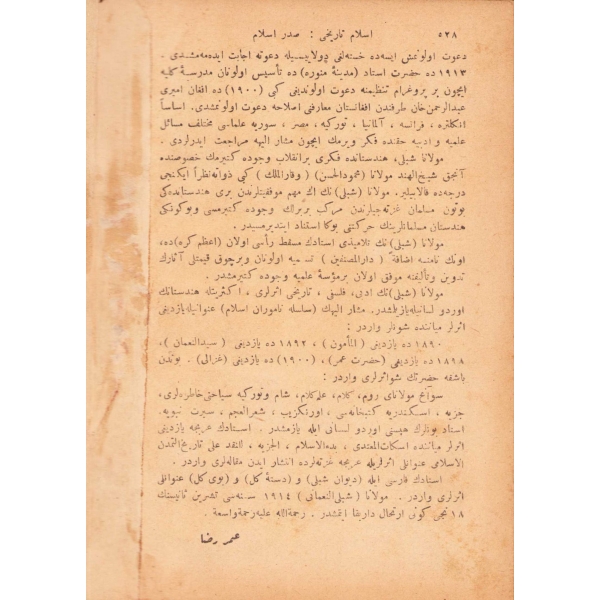 اسلام تاريخى : صدر اسلام ٥٢٨
دعوت اولونمش ايسه‌ده خسته‌لغى دولاييسيله دعوته اجابت ايده‌مه‌مشدى .
١٩١٣ ده حضرت استاد (مدينهٔ منوره) ده تأسيس اولونان مدرسهٔ كليه
ايچون بر پروغرام تنظيمنه دعوت اولونديغى كبى (١٩٠٠) ده افغان اميرى
عبدالرحمن‌خان طرفندن افغانستان معارفنى اصلاحه دعوت اولونمشدى . اساساً
انكلتره ، فرانسه ، آلمانيا ، توركيه ، مصر ، سوريه علماسى مختلف مسائل
علميه و ادبيه حقنده فكر ويرمك ايچون مشار اليهه مراجعت ايدرلردى .
مولانا شبلى، هندستانده فكرى برانقلاب وجوده كتيرمك خصوصنده
آنجق شيخ‌الهند مولانا (محمودالحسن) و (وقارالملك) كبى ذواته‌نظراً ايكنجى
درجه‌ده قالابيلير. مولانا (شبلى) نك اك مهم موفقيتلرندن برى هندستانده‌كى
بوتون مسلمان غزته‌جيلرندن مركب بربرلك وجوده كتيرمسى وبوكونكى
هندستان مسلمانلرينك حركتنى بوكا استناد ايتديرمسيدر.
مولانا (شبلى) نك تلاميذى استادك مسقط رأسى اولان (اعظم كره)ده،
اونك نامنه اضافةً ( دارالمصنفين ) تسميه اولونان وبرچوق قيمتلى آثارك
تدوين وتأليفنه موفق اولان برمؤسسهٔ علميه وجوده كتيرمشدر .
مولانا (شبلى)نك ادبى، فلسفى ، تاريخى اثرلرى ، اكثريتله هندستانك
اوردو لسانيله‌يازيلمشدر. مشار اليهك (سلسلهٔ ناموران اسلام) عنوانيله‌يازديغى
اثرلر مياننده شونلر واردر :
١٨٩٠ ده يازديغى ( المأمون ) ، ١٨٩٢ ده يازديغى ( سيدالنعمان )،
١٨٩٨ ده يازديغى (حضرت عمر) ، (١٩٠٠) ده يازديغى (غزالى) . بوندن
باشقه حضرتك شواثرلرى واردر :
سوانح مولاناى روم، كلام، علم‌كلام، شام وتوركيه سياحتى‌خاطره‌لرى،
جزيه ، اسكندريه كتبخانه‌سى ، اورنكزيب ، شعرالعجم ، سيرت نبويه.
استاد بونلرك هپسنى اوردو لسانى ايله يازمشدر . استادك عربجه يازديغى
اثرلر مياننده اسكات‌المعتدى ، بدءالاسلام ، الجزيه ، للنقد على تاريخ‌التمدن
الاسلامى عنوانلى اثرلريله عربجه غزته‌لرده انتشار ايدن مقاله‌لرى واردر .
استادك فارسى ايله (ديوان شبلى) و (دستهٔ كل) و (بوى‌كل) عنوانلى
اثرلرى واردر . مولانا (شبلى‌النعمانى) ١٩١٤ سنه‌سى تشرين ثانيسنك
١٨ نجى كونى ارتحال داربقا ايتمشدر . رحمة‌الله عليه رحمة واسعة .
عمر رضا